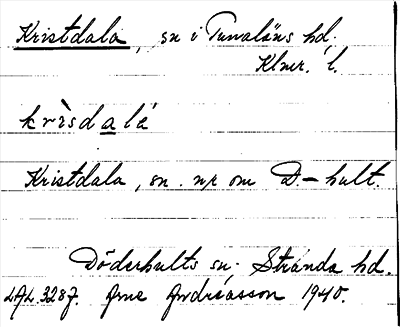 Kristdala, sn i Tunaläns hd.
Klmr. l.
krìsdalá
Kristdala, sn. np om D.-hult.
Döderhults sn. Stranda hd.
LAL. 3287. Arne Andréasson 1940.